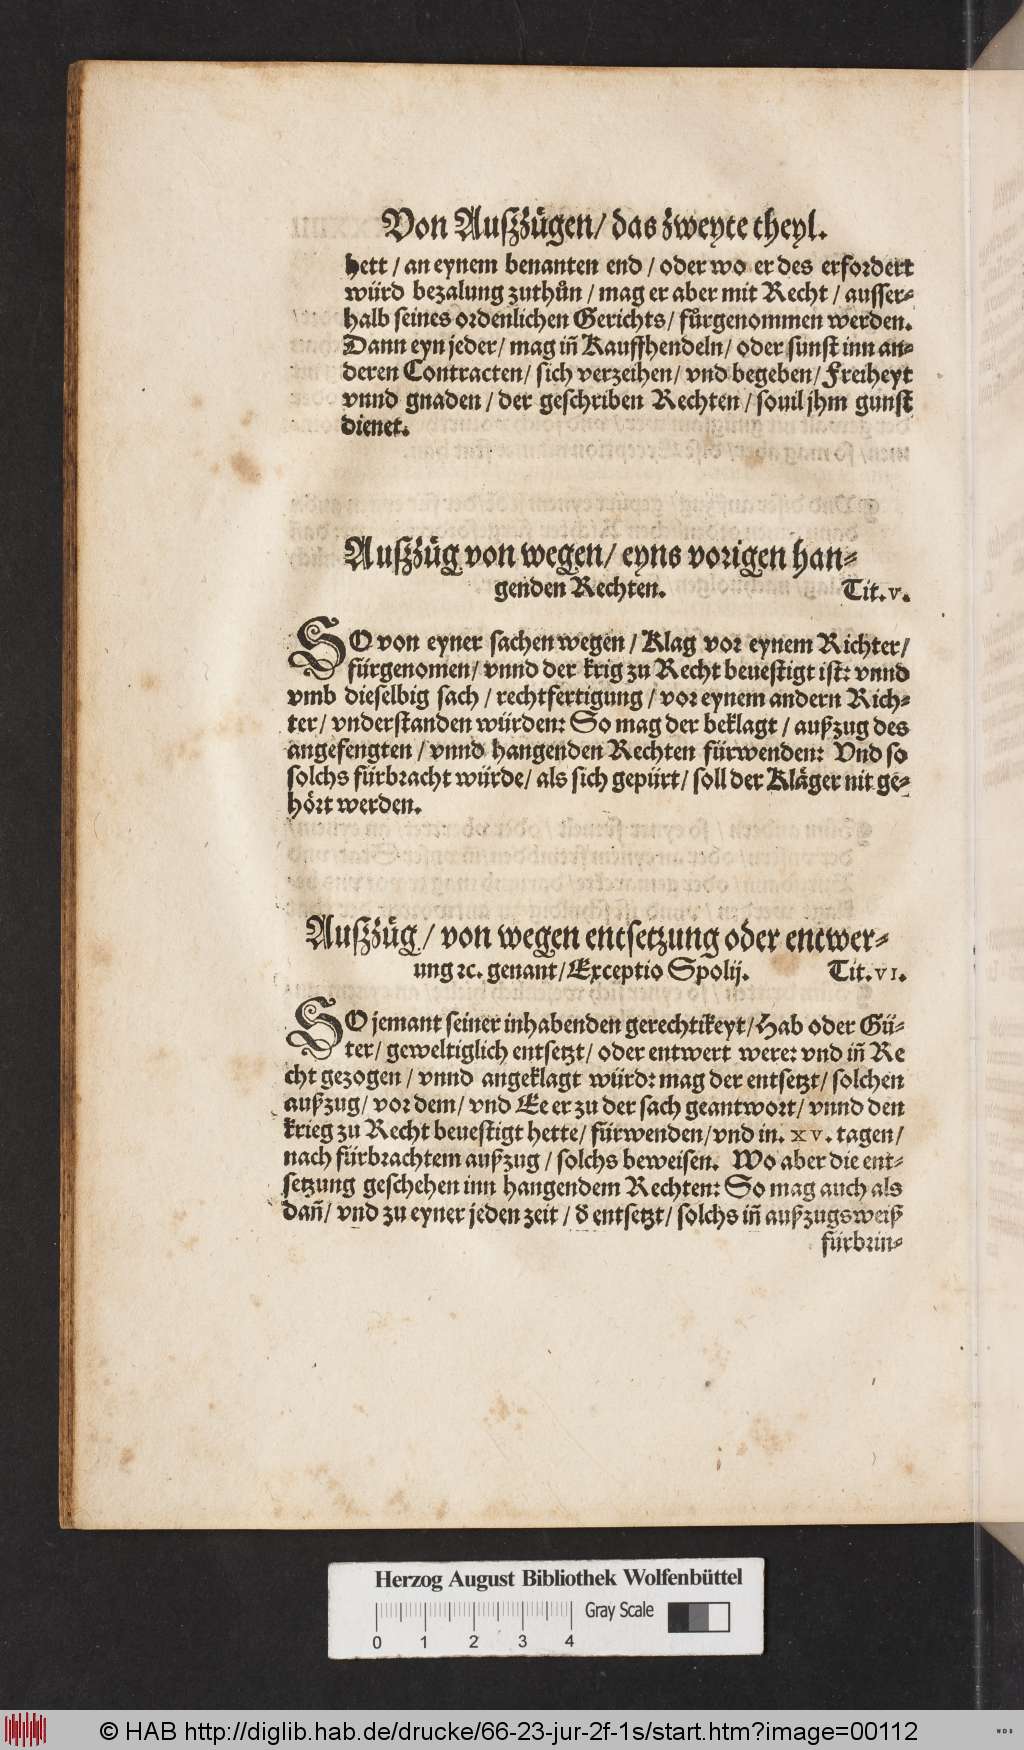 Von Auſzzügen/ das zweyte theyl.
hett / an eynem benanten end / oder wo er des erfordert
würd bezalung zuthůn / mag er aber mit Recht / auſſer⸗
halb ſeines ordenlichen Gerichts/ fůrgenommen werden.
Dann eyn jeder/ mag iñ Kauffhendeln/ oder ſunſt inn an⸗
deren Contracten/ ſich verzeihen/ vnd begeben/ Freiheyt
vnnd gnaden / der geſchriben Rechten / ſouil jhm gunſt
dienet.
Auſzzüg von wegen/ eyns vorigen han⸗
genden Rechten. Tit. v.
SO von eyner ſachen wegen / Klag vor eynem Richter/
fürgenomen/ vnnd der krig zu Recht beueſtigt iſt: vnnd
vmb dieſelbig ſach / rechtfertigung / vor eynem andern Rich⸗
ter/ vnderſtanden würden: So mag der beklagt / außzug des
angefengten / vnnd hangenden Rechten fürwenden: Vnd ſo
ſolchs fürbracht würde/ als ſich gepürt/ ſoll der Kläger nit ge⸗
hört werden.
Auſzzüg / von wegen entſetzung oder entwer⸗
ung ꝛc. genant/ Exceptio Spolij. Tit. VI.
SO jemant ſeiner inhabenden gerechtikeyt/ Hab oder Gü⸗
ter/ geweltiglich entſetzt/ oder entwert were: vnd iñ Re
cht gezogen / vnnd angeklagt würd: mag der entſetzt/ ſolchen
außzug/ vor dem/ vnd Ee er zu der ſach geantwort/ vnnd den
krieg zu Recht beueſtigt hette/ fürwenden/ vnd in. XV. tagen/
nach fürbrachtem außzug / ſolchs beweiſen. Wo aber die ent⸗
ſetzung geſchehen inn hangendem Rechten: So mag auch als
dañ/ vnd zu eyner jeden zeit / đ entſetzt/ ſolchs iñ außzugsweiß
fürbrin⸗
Herzog August Bibliothek Wolfenbüttel
Gray Scale
0 1 2 3 4
© HAB http://diglib.hab.de/drucke/66-23-jur-2f-1s/start.htm?image=00112